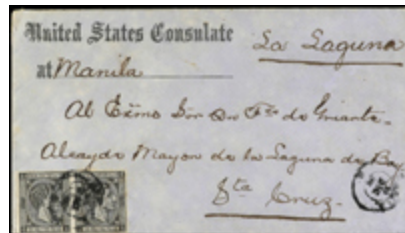 United States Consulate
La Laguna
at Manila
Al Exmo Sor Dn Fco de Yriarte.
Alcayde Mayor de la Laguna de Bay
Sta Cruz.